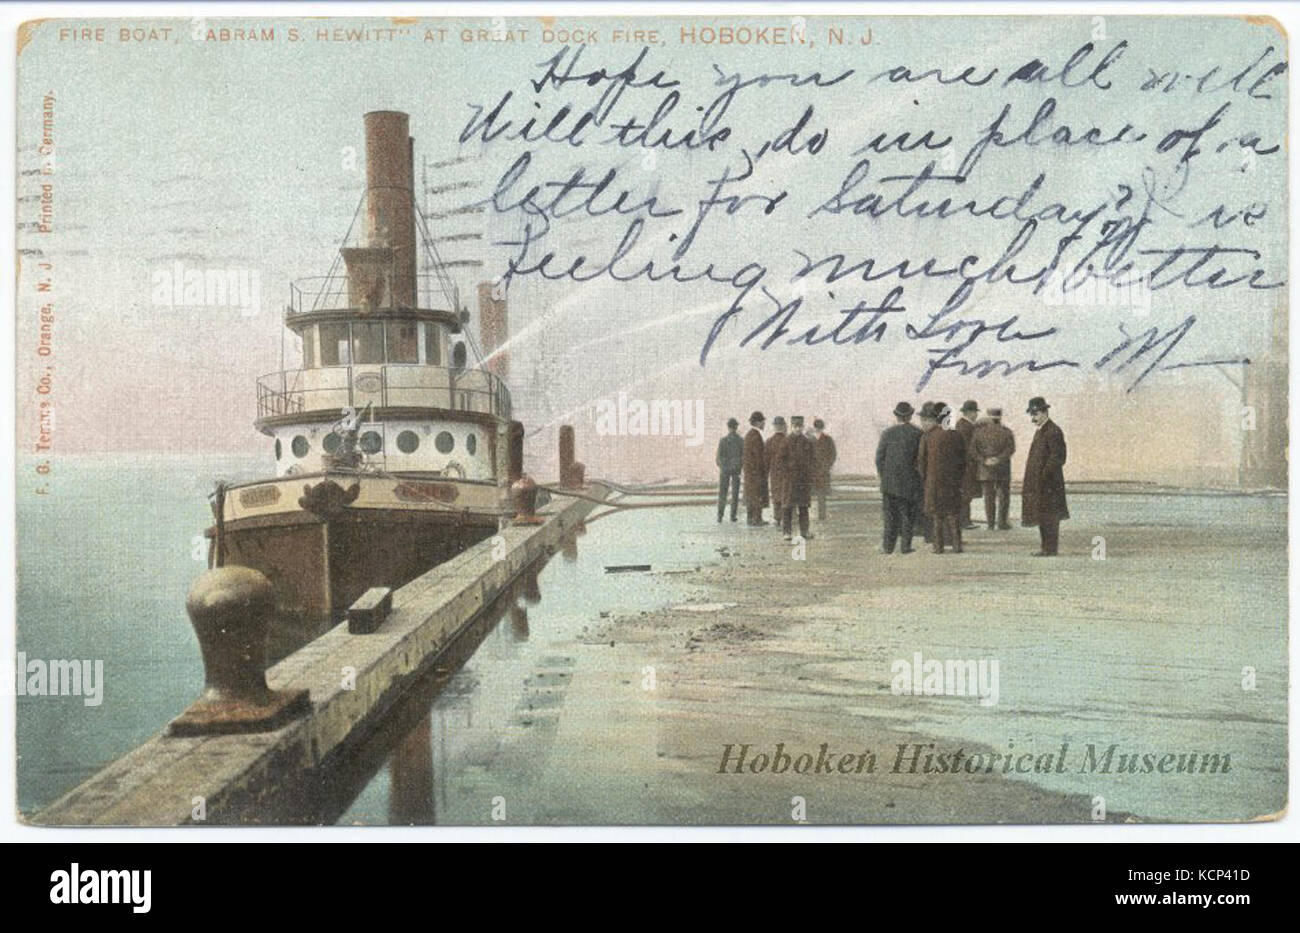 FIRE BOAT, "ABRAM S. HEWITT" AT GREAT DOCK FIRE, HOBOKEN, N. J.
Hope you are all well
Will this do in place of a
letter for Saturday? I is
feeling much better
With Love
from M—
F. G. Temme Co., Orange, N. J. Printed in Germany.
Hoboken Historical Museum
a
alamy
a
alamy
alamy
a
a
alamy
a
alamy
a
a
alamy
Image ID: KCP41D
www.alamy.com